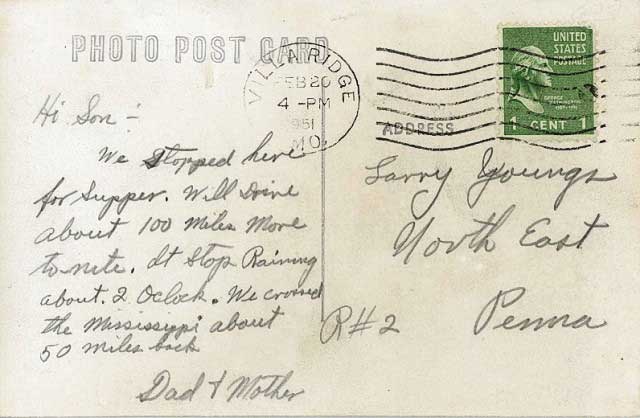 PHOTO POST CARD
VILLA RIDGE
FEB 20
4 -PM
1951
MO.
UNITED
STATES
POSTAGE
GEORGE
WASHINGTON
1 CENT 1
ADDRESS
Hi Son -
We Stopped here
for Supper. Will Drive
about 100 Miles More
to nite. It Stop Raining
about. 2 Oclock. We crossed
the Mississippi about
50 miles back
Dad + Mother
Larry Youngs
North East
R#2 Penna